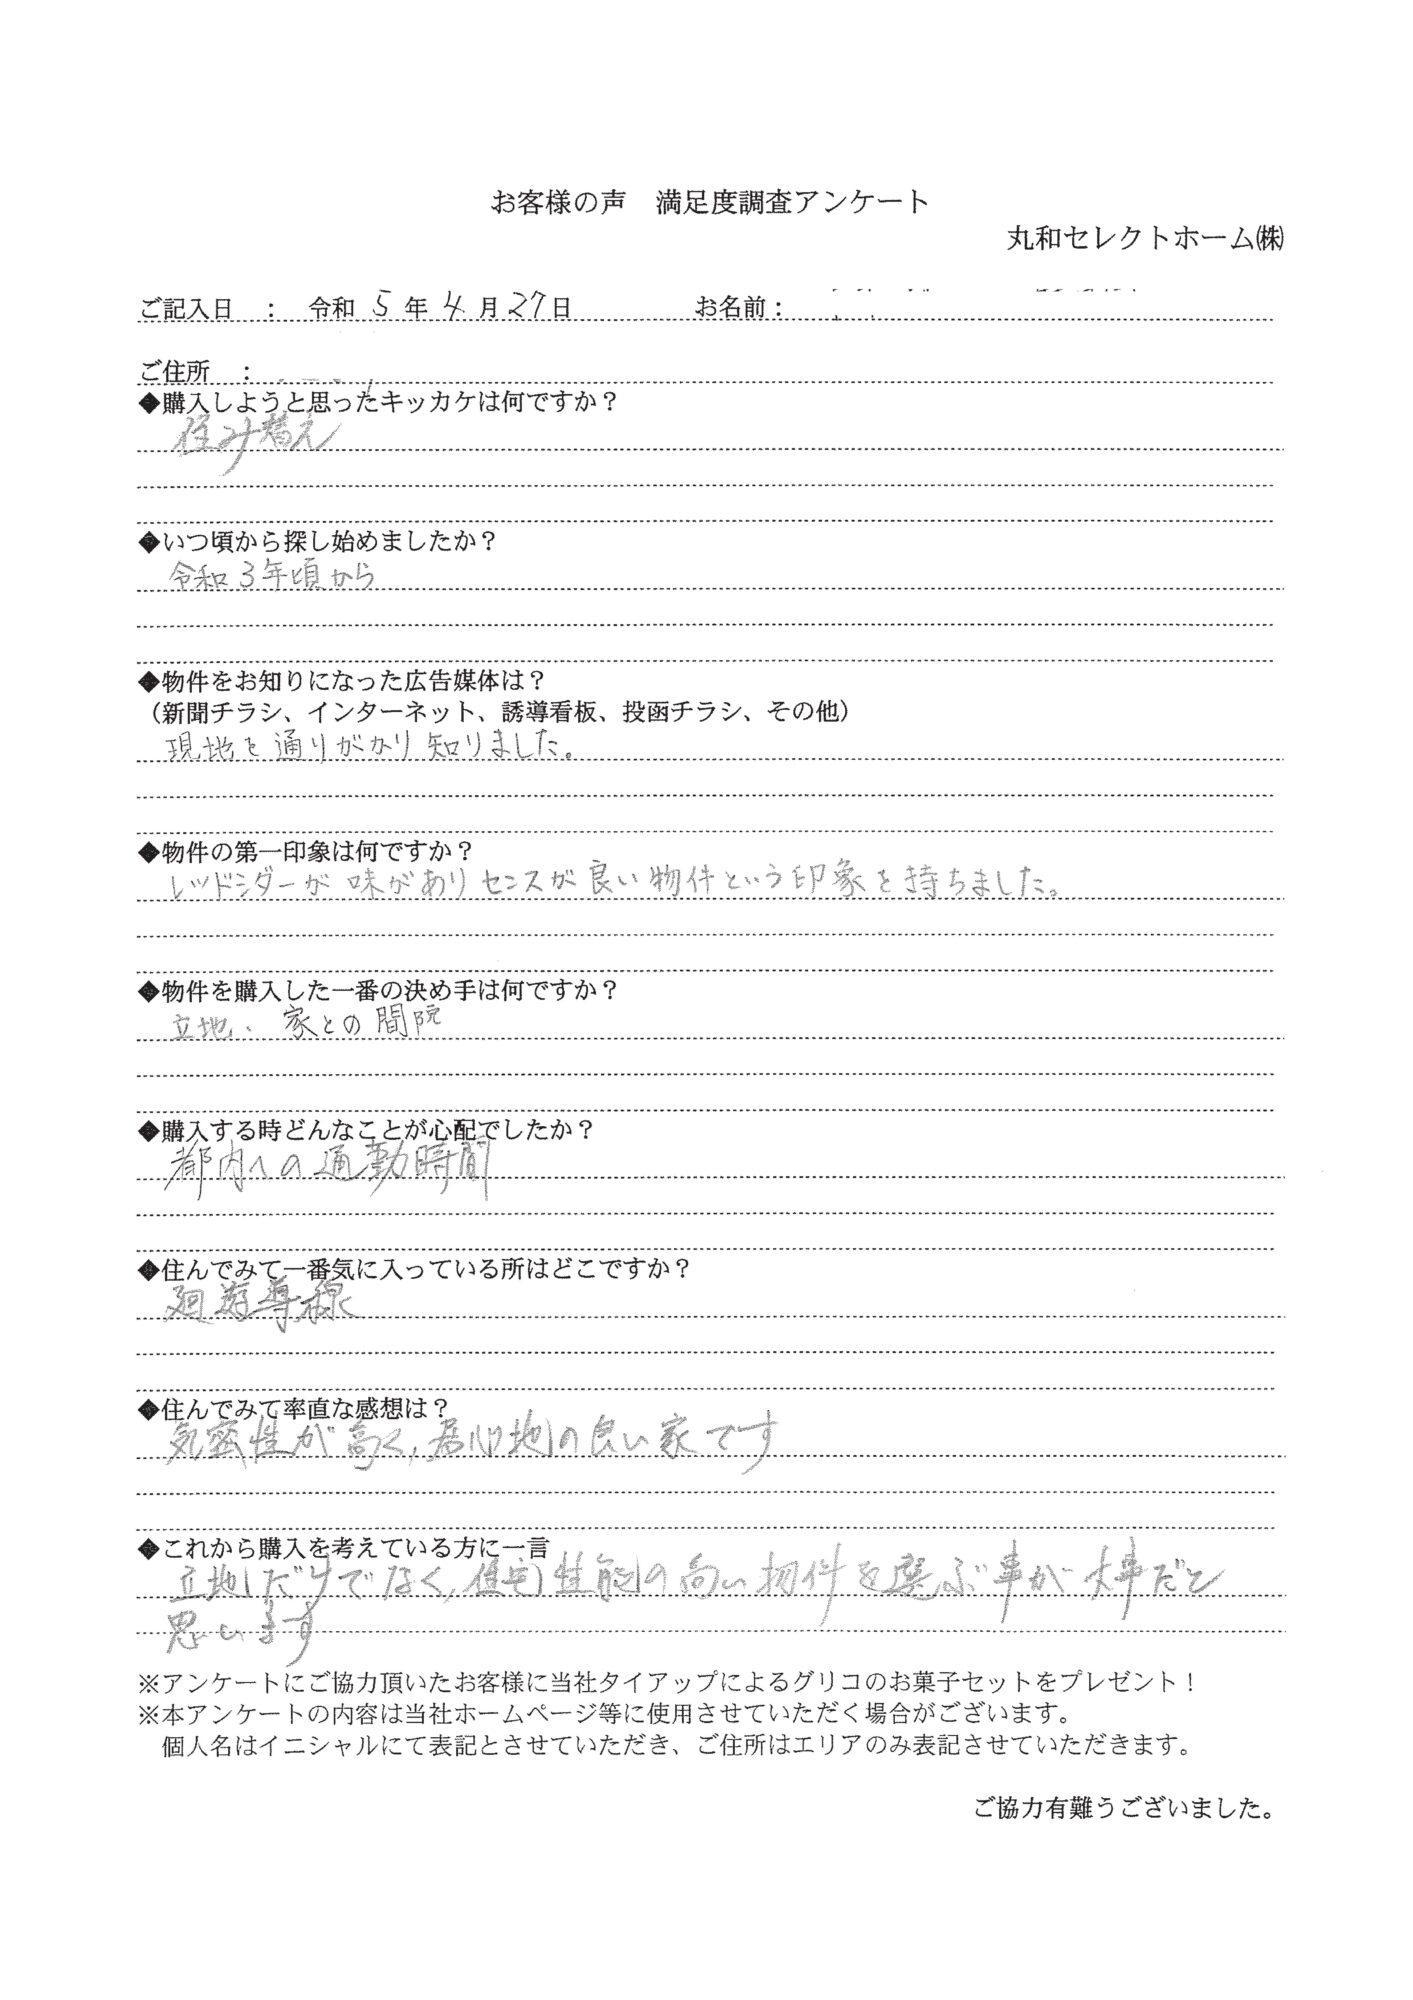 お客様の声　満足度調査アンケート
丸和セレクトホーム㈱
ご記入日　：　令和 5 年 4 月 27 日　　お名前：
ご住所　：
◆購入しようと思ったキッカケは何ですか？
住み替え
◆いつ頃から探し始めましたか？
令和3年頃から
◆物件をお知りになった広告媒体は？
（新聞チラシ、インターネット、誘導看板、投函チラシ、その他）
現地を通りがかり知りました。
◆物件の第一印象は何ですか？
レッドシダーが味がありセンスが良い物件という印象を持ちました。
◆物件を購入した一番の決め手は何ですか？
立地、家との間院
◆購入する時どんなことが心配でしたか？
都内への通勤時間
◆住んでみて一番気に入っている所はどこですか？
廻遊導線
◆住んでみて率直な感想は？
気密性が高く、居心地の良い家です
◆これから購入を考えている方に一言
立地だけでなく、住宅性能の高い物件を選ぶ事が大事だと
思います
※アンケートにご協力頂いたお客様に当社タイアップによるグリコのお菓子セットをプレゼント！
※本アンケートの内容は当社ホームページ等に使用させていただく場合がございます。
個人名はイニシャルにて表記とさせていただき、ご住所はエリアのみ表記させていただきます。
ご協力有難うございました。